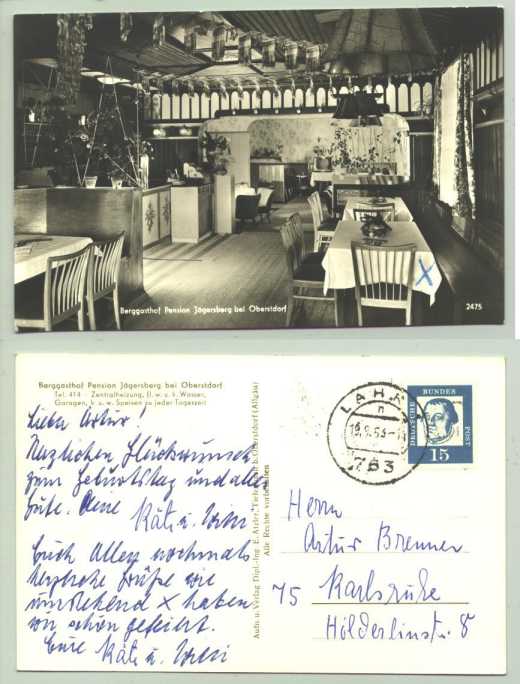 Berggasthof Pension Jägersberg bei Oberstdorf
2475
Berggasthof Pension Jägersberg bei Oberstdorf
Tel. 414 - Zentralheizung, fl. w. u. k. Wasser,
Garagen, k. u. w. Speisen zu jeder Tageszeit
Lieber Artur!
Herzlichen Glückwunsch
zum Geburtstag und alles
Gute. Deine
Käti u.
Euch Allen nochmals
herzliche Grüße wie
umstehend x haben
wir schön gefeiert.
Eure Käti u.
Aufn. u. Verlag Dipl.-Ing. E. Atzler, Tiefenbach b. Oberstdorf (Allgäu)
Alle Rechte vorbehalten
LAHR
763
DEUTSCHE BUNDES POST
15
Herrn
Artur Brenner
75 Karlsruhe
Hölderlinstr. 8